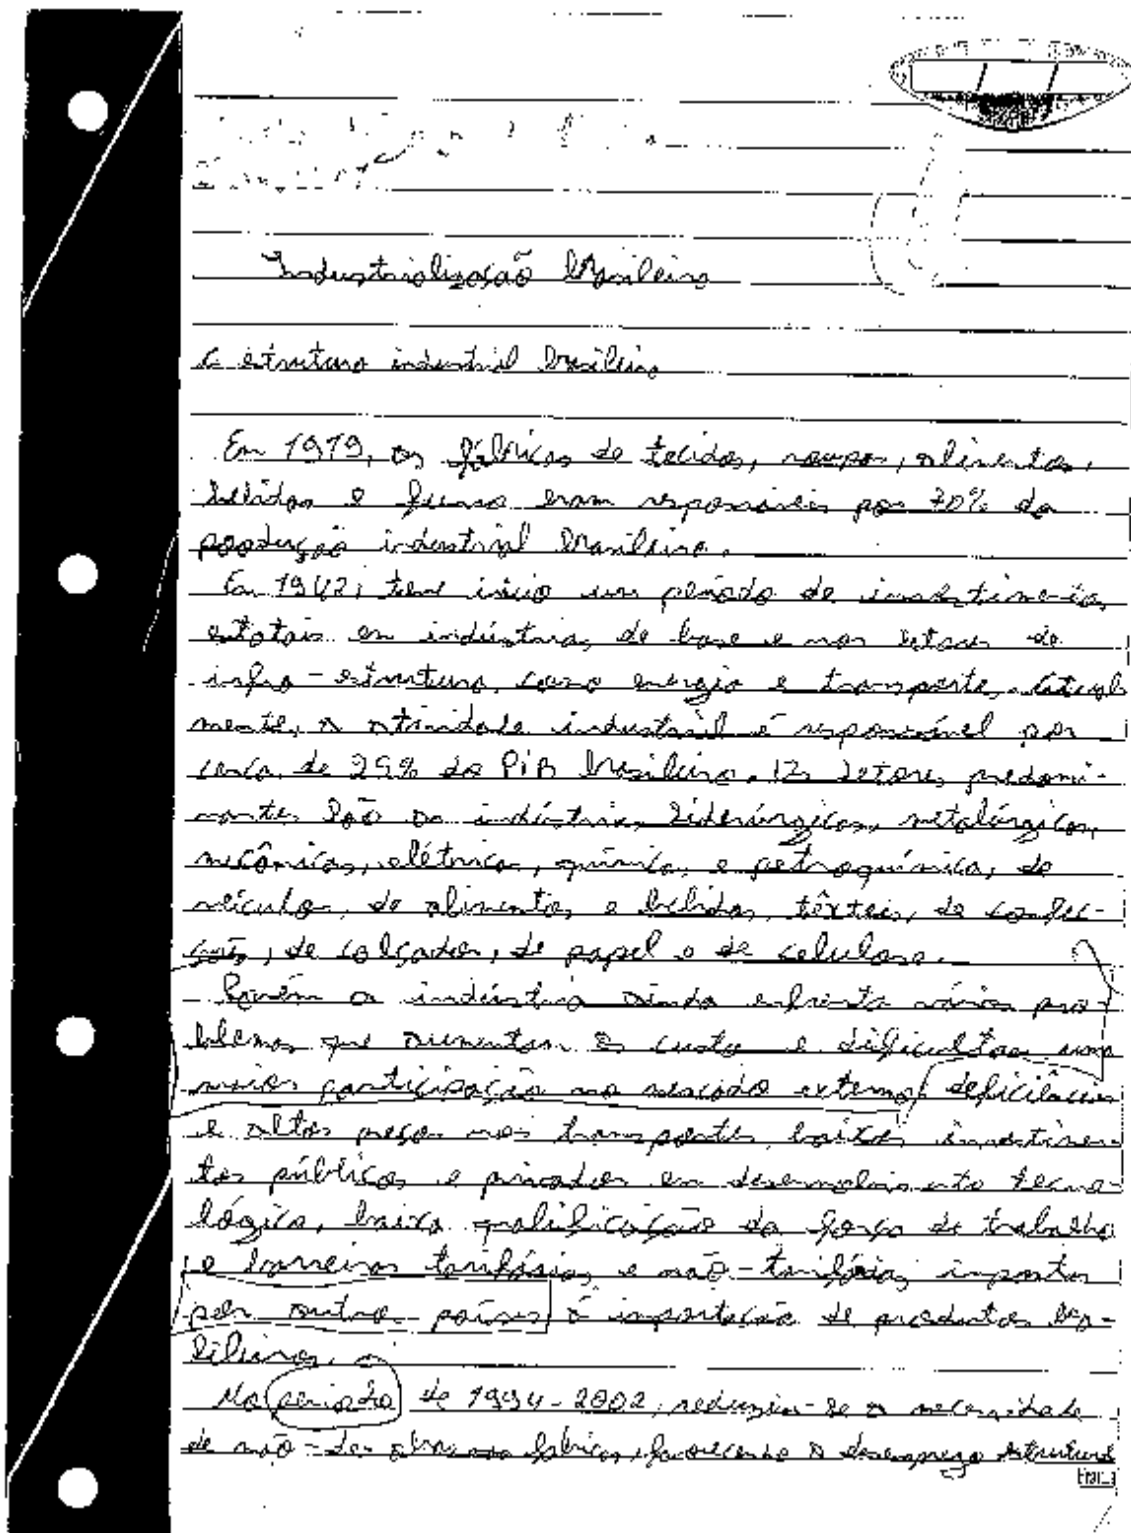 Industrialização brasileira
A estrutura industrial brasileira
Em 1919, as fábricas de tecidos, roupas, alimentos,
bebidas e fumo eram responsáveis por 70% da
produção industrial brasileira.
Em 1942, teve início um período de investimentos
estatais em indústrias de base e nos setores de
infra-estrutura, como energia e transporte. Atual
mente, a atividade industrial é responsável por
cerca de 29% do PIB brasileiro. Os setores predomi-
nantes são as indústrias siderúrgicas, metalúrgicas,
mecânicas, elétricas, química e petroquímica, de
veículos, de alimentos e bebidas, têxteis, de confec-
ções, de calçados, de papel e de celulose.
Porém a indústria ainda enfrenta vários pro-
blemas que aumentam os custos e dificultam uma
maior participação no mercado externo, deficiências
e altos preços nos transportes, baixos investimen-
tos públicos e privados em desenvolvimento tecno-
lógico, baixa qualificação da força de trabalho
e barreiras tarifárias e não-tarifárias impostas
por outros países à importação de produtos bra-
sileiros.
No período de 1994-2002, reduziu-se a necessidade
de mão-de-obra nas fábricas, favorecendo o desemprego estrutural